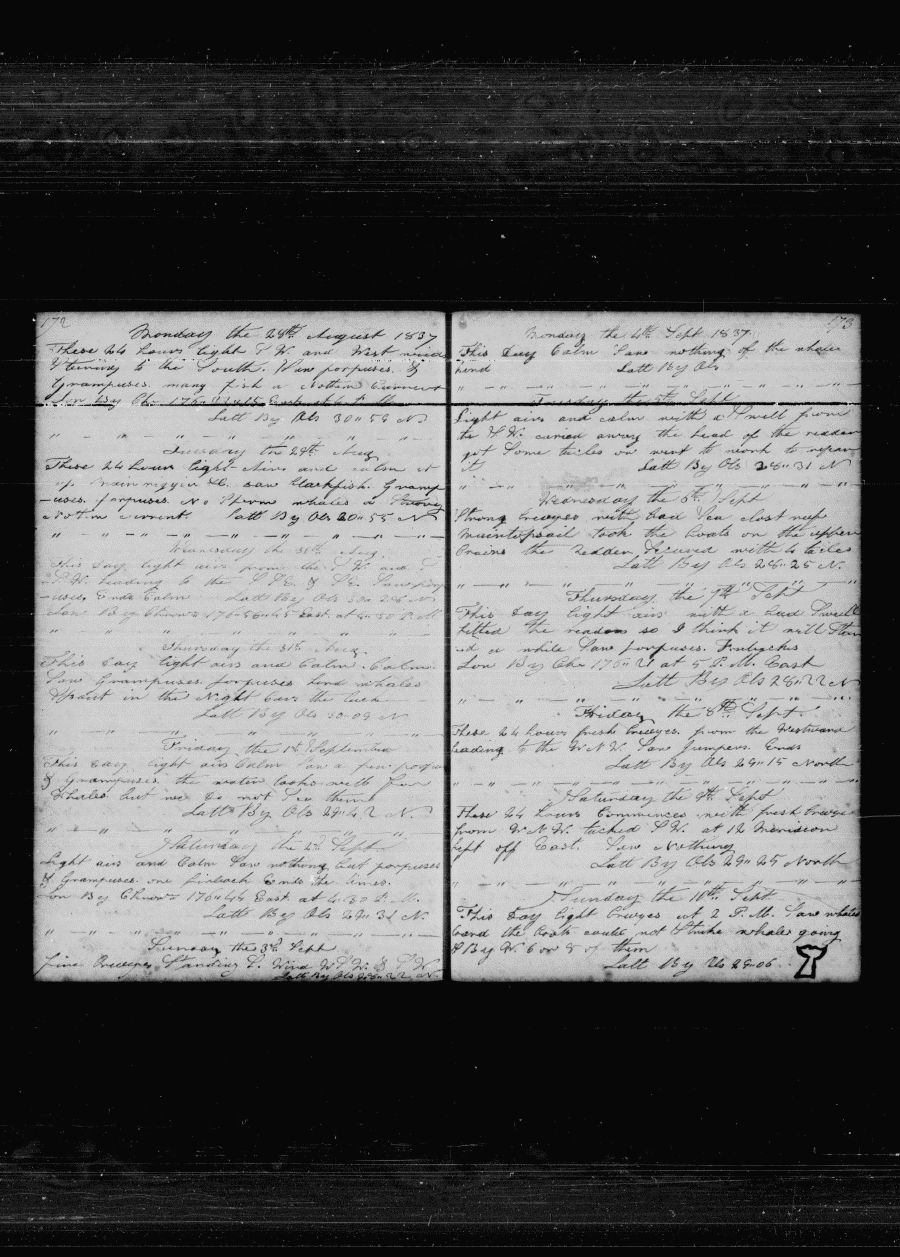 172
Monday the 28th August 1837
These 24 hours light S W. and West wind
Steering to the South. Saw porpuses. &
Grampuses. many fish a Nothin Current
Lon By Chr 176
Latt By Obs 30" 59 N
Tuesday the 29th Aug
These 24 hours light Airs and calm
up Main riggin &c. saw blackfish. Gramp
-uses. porpuses. No Sperm whales a Strong
Nothin Current. Latt By Obs 30" 55 N
Wednesday the 30th Aug
This day light airs from the S W. and S
S W. heading to the S S E. & S E. Saw porp
-uses. Ends Calm Latt By Obs 30" 28 N
Lon By Chron 176" 56" 45 East. at 4" 30 P. M
Thursday the 31st Aug.
This day light airs and Calm. Calm
Saw Grampuses. porpuses hird whales
Spout in the Night Curs the luck
Latt By Obs 30-09 N
Friday the 1st September
This day light airs Calm Saw a few porpus
& Grampuses. the water looks well for
Whales but we do not See them
Latt By Obs 29" 42 N.
Saturday the 2d Sept
Light airs and Calm Saw nothing but porpuses
& Grampuses one finback Ends the times.
Lon By Chron 176" 44 East. at 4-30 P. M.
Latt By Obs 29" 31 N.
Sunday the 3d Sept
fine Breezes Standing S. Wind W S W. & S W
Latt By Obs 28" 22 N
173
Monday the 4th Sept 1837
This day Calm Saw nothing of the whale
kind Latt By Obs
Tuesday the 5th Sept
Light airs and calm with a Swell from
the S W. caried away the head of the rudder
got Some ticles on went to work to repair
it Latt By Obs 28" 31 N
Wednesday the 6th Sept
Strong breezes with bad Sea close reep
Maintopsail took the boats on the upper
Crains the Rudder Secured with 4 ticles
Latt By Obs 28" 25 N.
Thursday the 7th Sept
This day light airs with a bad Swell
fitted the rudder so I think it will Stan
-d a while Saw porpuses. Finbacks
Lon By Chr 176" 21 at 5 P. M. East
Latt By Obs 28" 22 N
Friday the 8th Sept.
These 24 hours fresh breezes. from the Westward
heading to the W N W. Saw Jumpers. Ends
Latt By Obs 29" 15 North
Saturday the 9th Sept
These 24 hours Commences with fresh breeze
from W N W. tacked S W. at 12 Meridian
kept off East. Saw Nothing
Latt By Obs 29" 25 North
Sunday the 10th Sept
This day light breezes at 2 P. M. Saw whales
lowrd the boats could not Strike whales going
S By W 6 or 8 of them
Latt By Obs 29-06